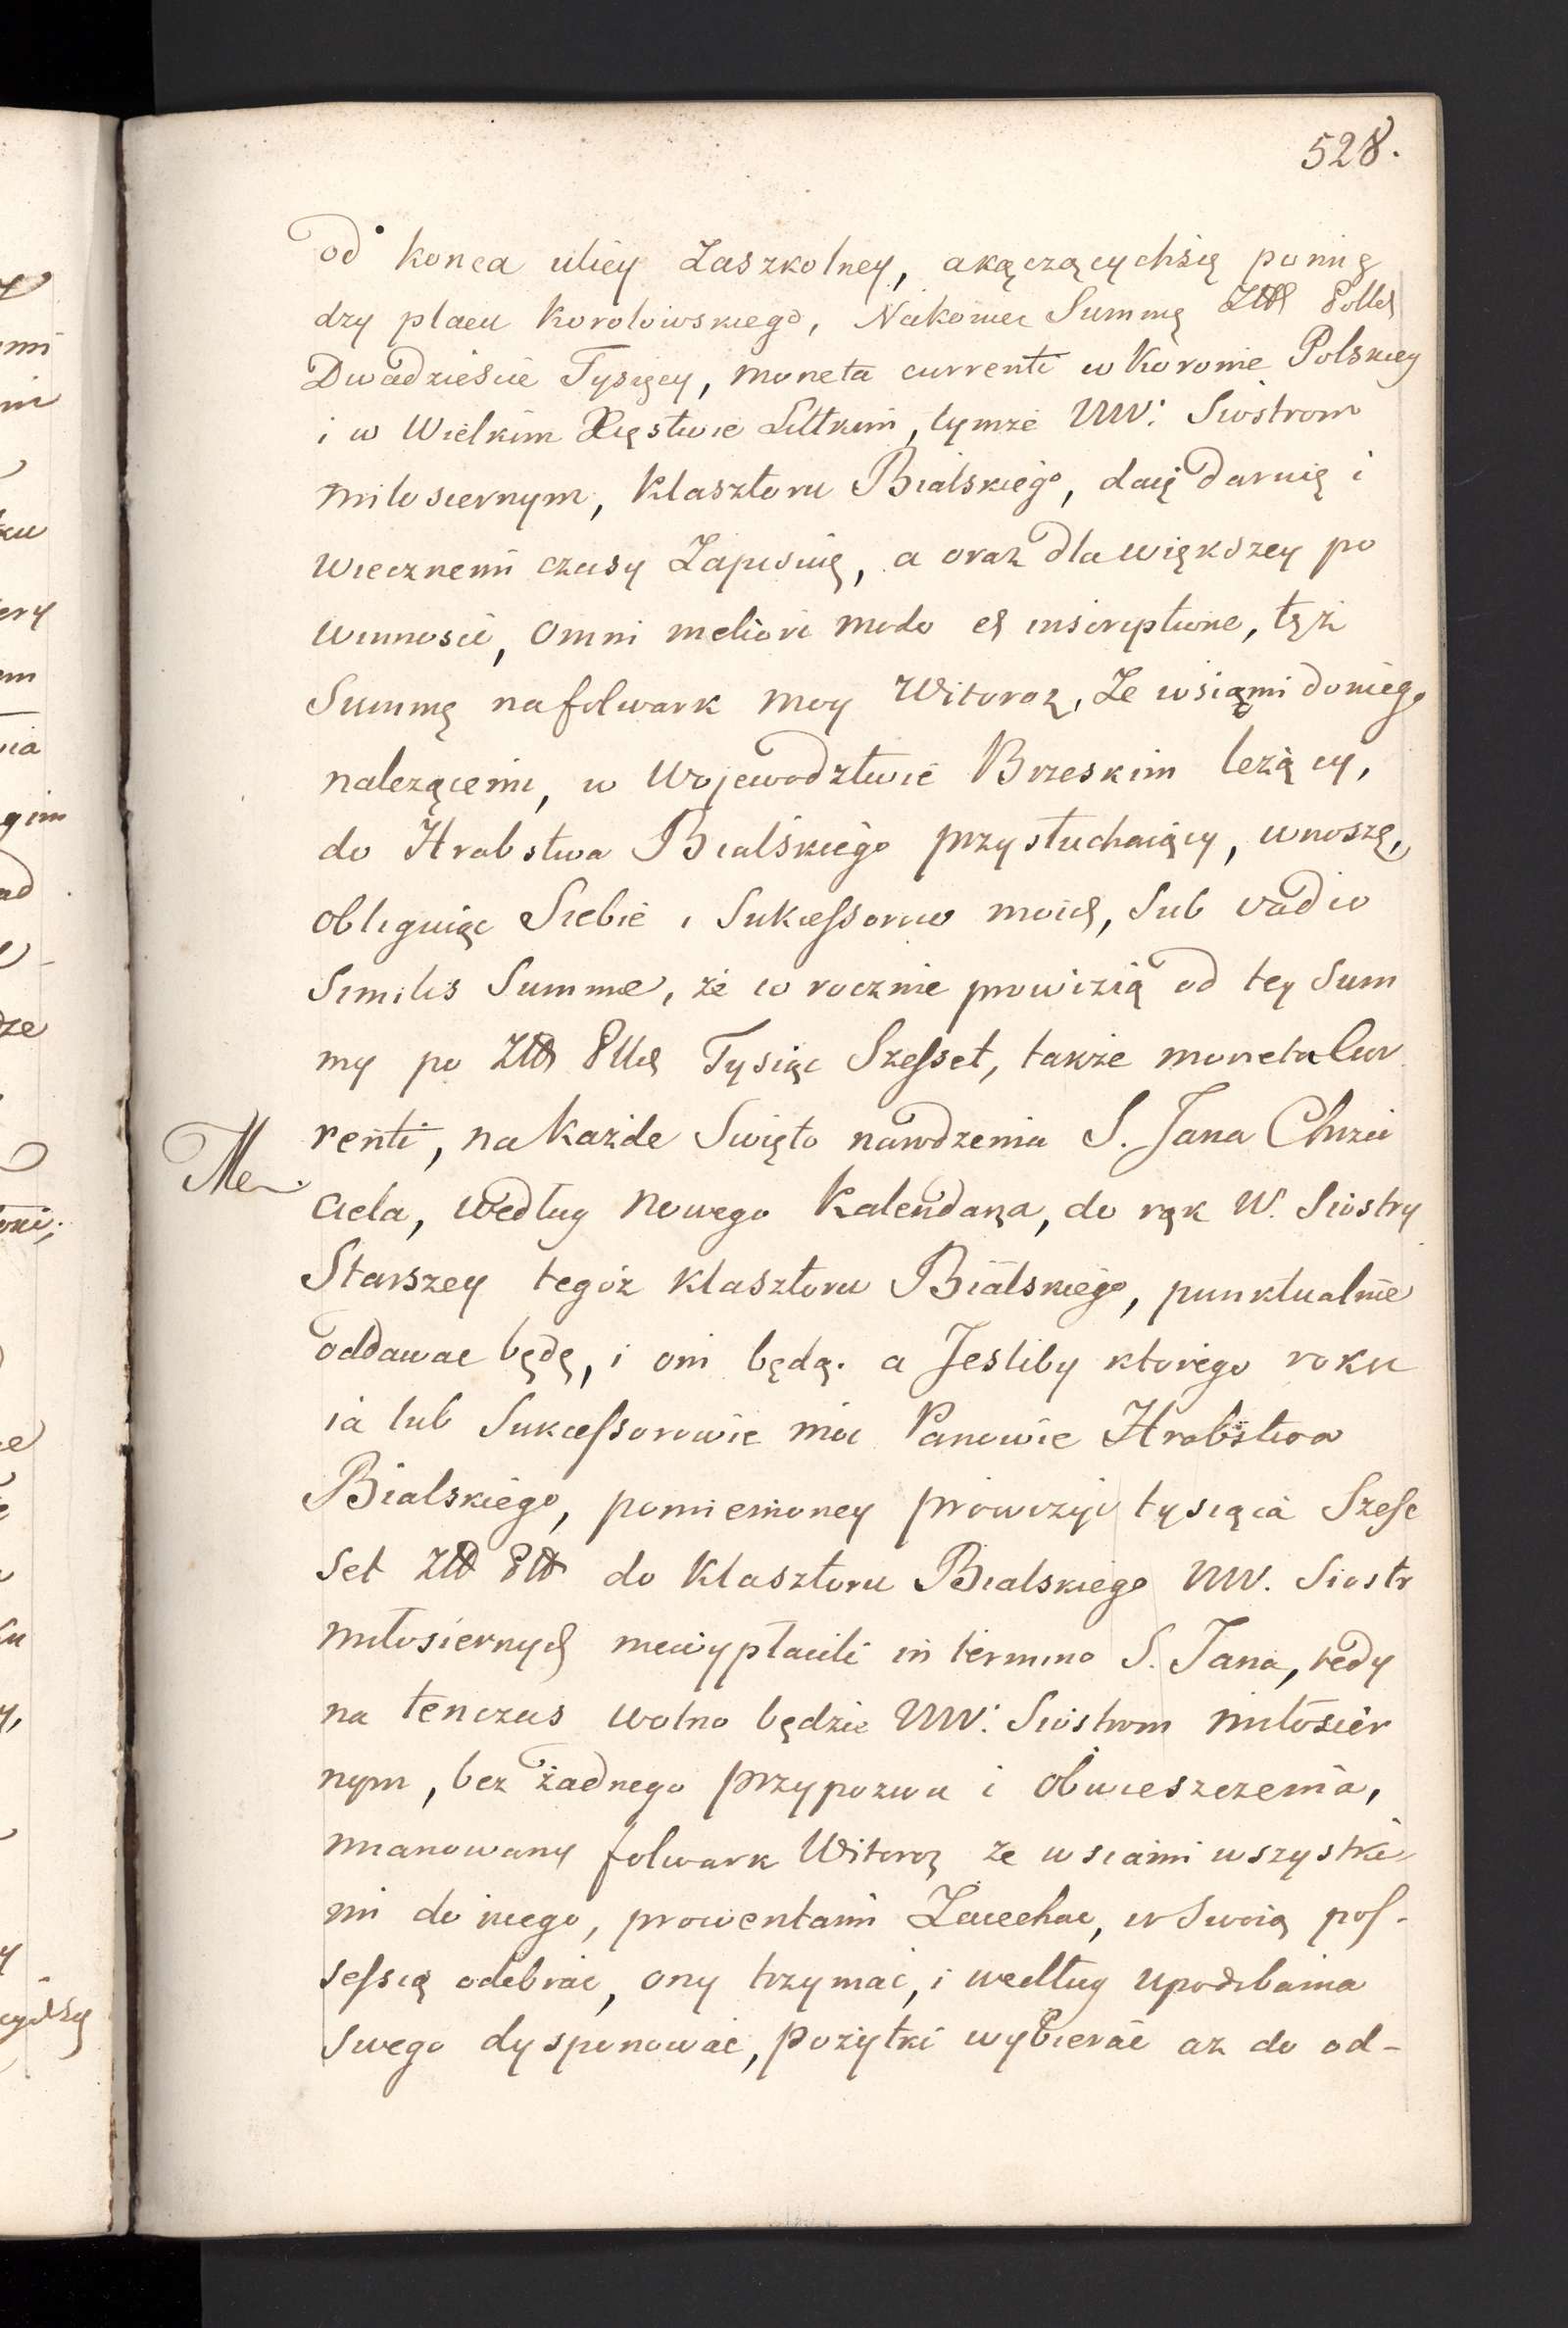 528.
od konca ulicy Zaszkolney, a kączących się pomię
dzy placu Korolowskiego, Nakoniec Summę Złłch Pollch
Dwadzieście Tysięcy, moneta currenti w Koronie Polskiey
i w Wielkim Xięstwie Littkim, tymże WW: Siostrom
miłosiernym, Klasztoru Bialskiego, daię daruię i
wiecznemi czasy Zapisuię, a oraz dla większey po
winnosci, omni meliori modo et inscriptione, tęż
Summę na folwark moy Witoroz, Ze wsiami do niego
nalezącemi, w Wojewodztwie Brzeskim lezący,
do Hrabstwa Bialskiego przysłuchaiący, wnoszę,
obliguiąc Siebie i Sukcessorow moich, Sub vadio
Similis Summæ, że co rocznie prowizią od tey Sum
my po Złłch Pllch Tysiąc Szesset, także moneta Cur
renti, na każde Swięto narodzenia S. Jana Chrzci
ciela, według Nowego Kalendarza, do rąk W. Siostry
Starszey tegoż Klasztoru Bialskiego, punktualnie
oddawac będę, i oni będą. a Jesliby ktorego roku
ia lub Sukcessorowie moi Panowie Hrabstwa
Bialskiego, pomienioney prowizyi tysiąca Szesc
set Złł Płł do Klasztoru Bialskiego WW. Siostr
miłosiernych niewypłacili in termino S. Jana, tedy
na tenczas wolno będzie WW: Siostrom miłosier
nym, bez żadnego przypozwu i obwieszczenia,
mianowany folwark Witoroz ze wsiami wszystkie-
mi do niego, prowentami Zaiechac, w Swoią pos-
sessią odebrac, ony trzymac, i według upodobania
swego dysponowac, pożytki wybierac az do od-